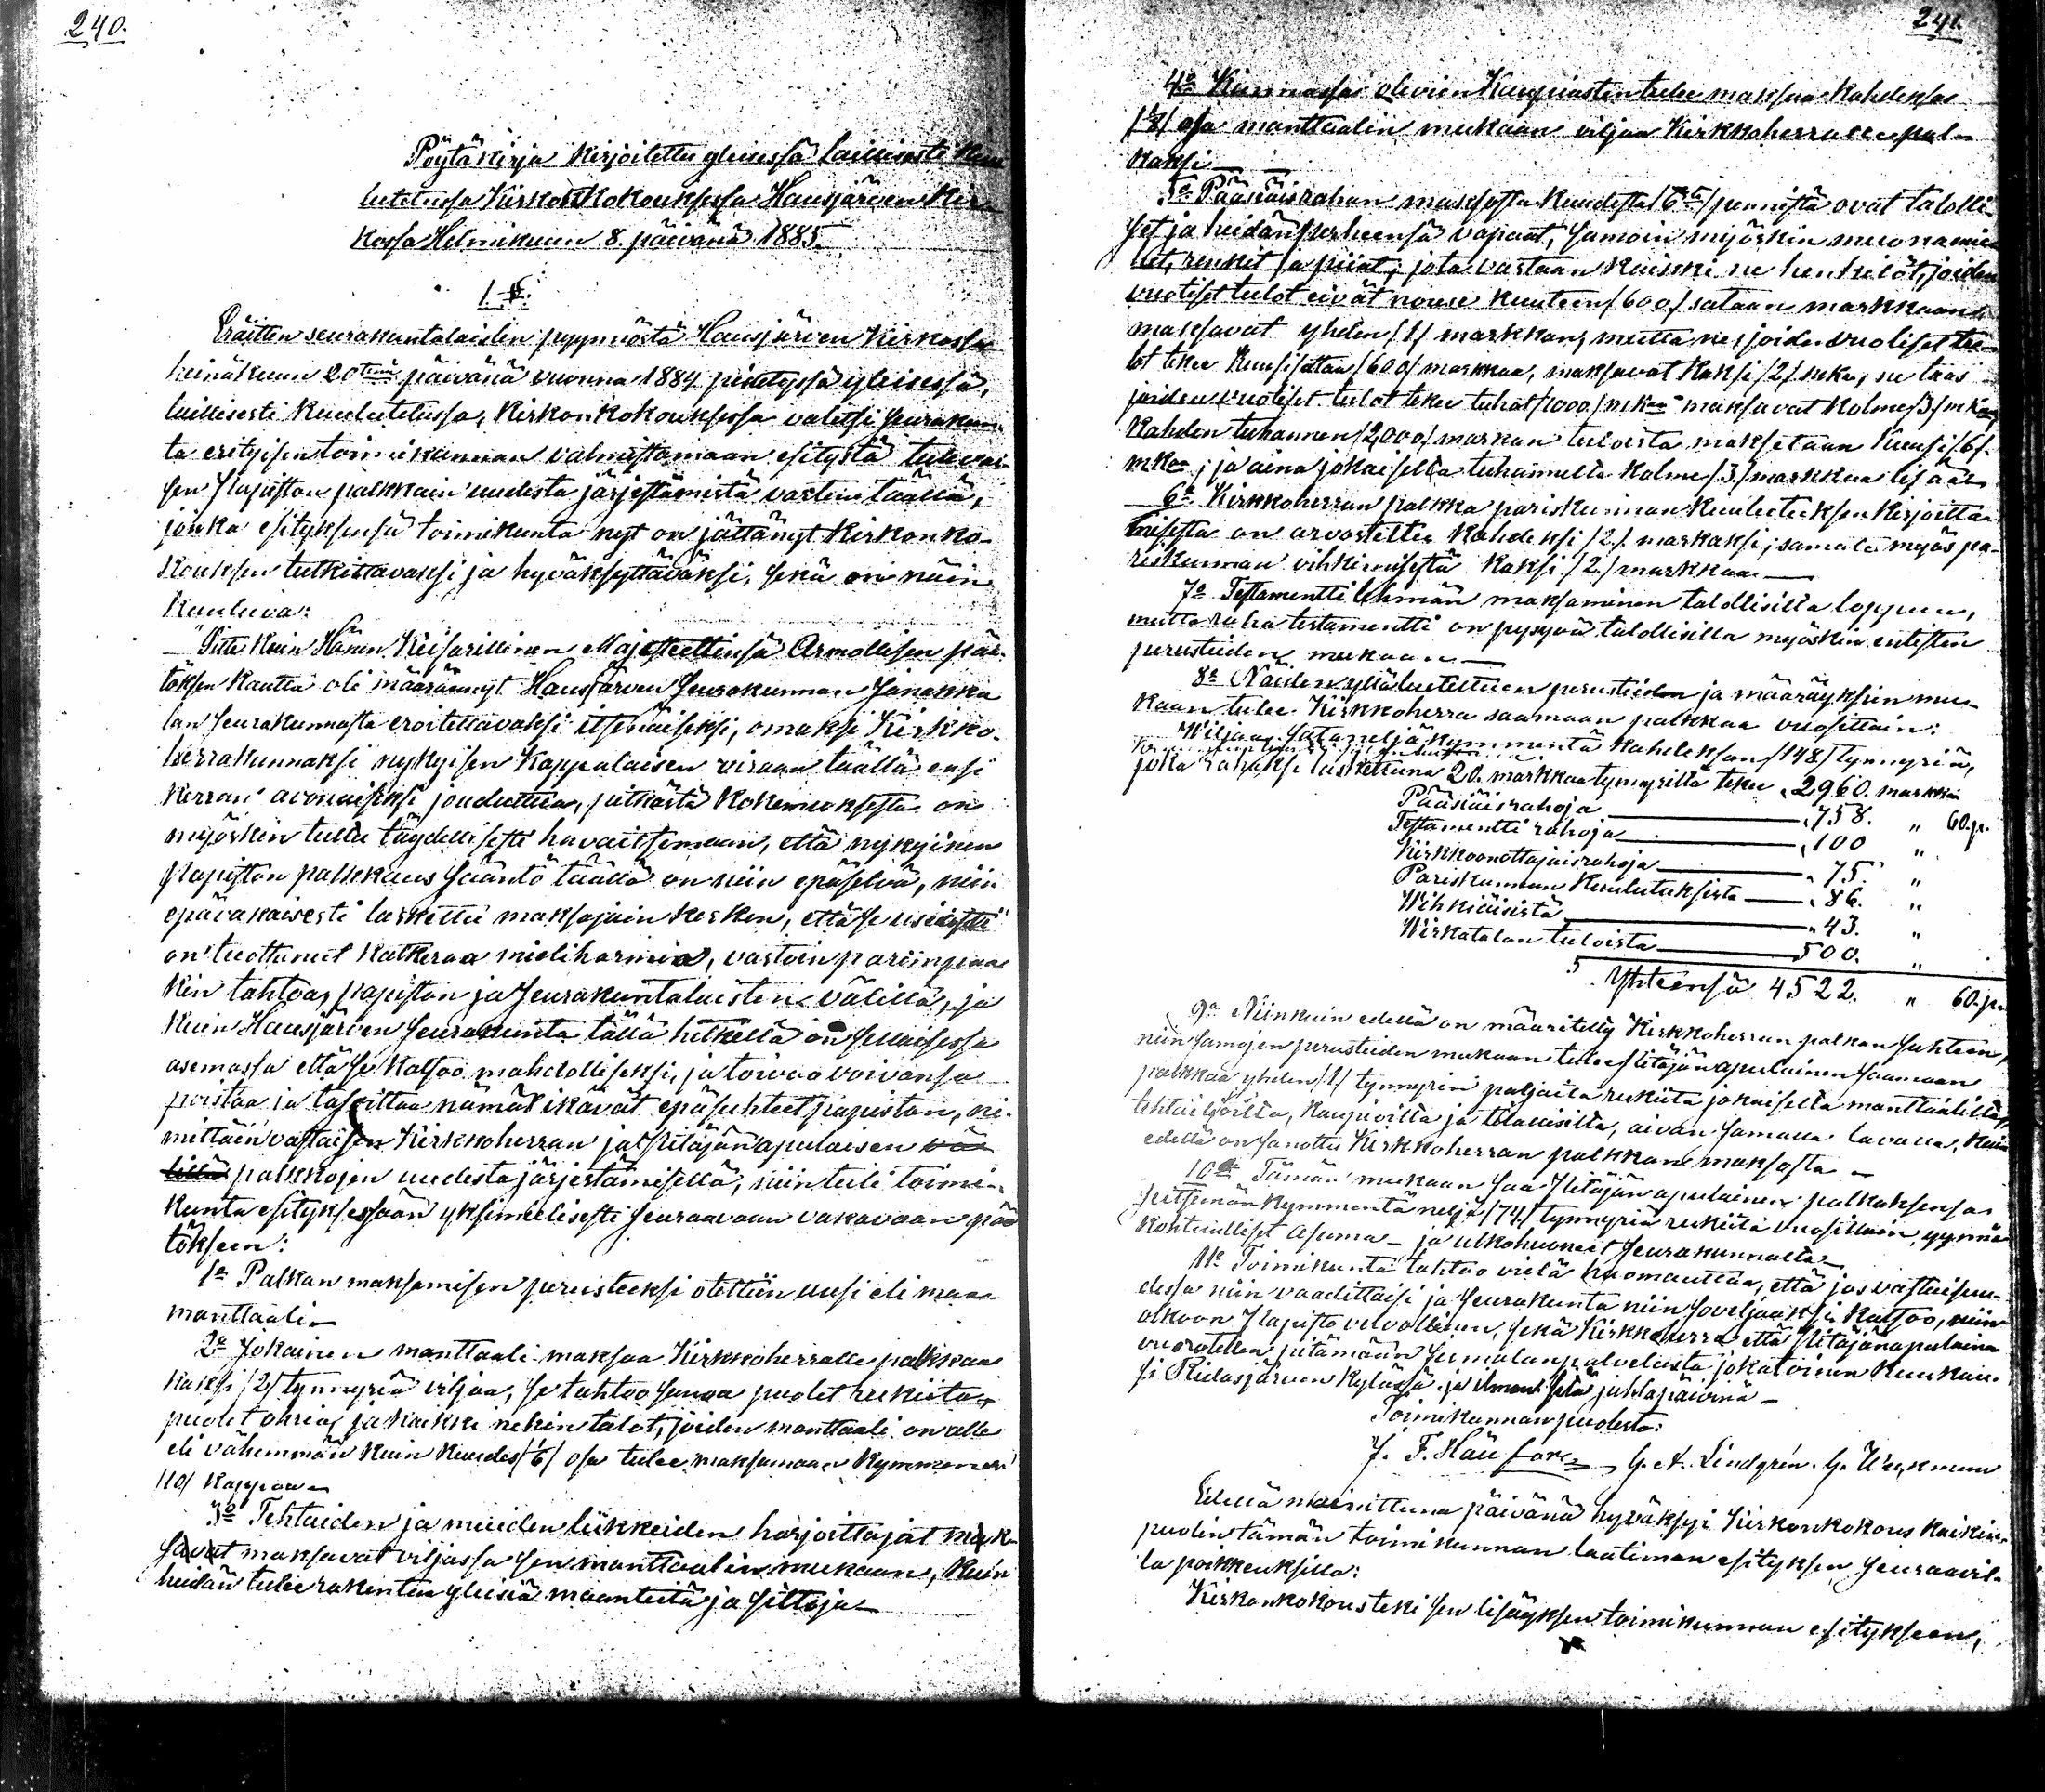 240.
Pöytäkirja kirjoitettu yleisessä laillisesti kuu
lutetussa Kirkonkokouksessa Hausjärven Kir-
kossa Helmikuun 8. päivänä 1885.
1 §.
Eräitten seurakuntalaisten pyynnöstä Hausjärven Kirkossa
heinäkuun 20tenä päivänä vuonna 1884 pidetyssä yleisessä,
laillisesti kuulutetussa, Kirkonkokouksessa valitsi seurakun-
ta erityisen toimikunnan valmistamaan esitystä tulevai-
sen Papiston palkkain uudesta järjestämistä varten täällä,
jonka esityksensä toimikunta nyt on jättänyt Kirkonko-
kouksen tutkittavaksi ja hyväksyttäväksi, sekä on näin
kuuluva:
"Sitte kuin Hänen Keisarillinen Majesteettinsä Armollisen pää-
töksen kautta oli määrännyt Hausjärven Seurakunnan Janakka
lan seurakunnasta eroitettavaksi itsenäiseksi, omaksi Kirkko-
herrakunnaksi nykyisen Kappalaisen viraan täällä ensi
kerran avonaiseksi jouduttua, pitkästä kokemuksesta on
myöskin tultu täydellisesti havaitsemaan, että nykyinen
Papiston palkkaus sääntö täällä on niin epäselvä, niin
epävakaisesti laskettu maksajain kesken, että se useasti
on tuottanut katkeraa mieliharmia, vastoin parimpaa
kin tahtoa, papiston ja seurakuntalaisten välillä, ja
kuin Hausjärven seurakunta tällä hetkellä on sellaisessa
asemassa että se katsoo mahdolliseksi, ja toivoo voivansa
poistaa ja tasoittaa nämät ikävät epäsuhteet papiston, ni-
mittäin vastaisen Kirkkoherran ja Pitäjänapulaisen vä
lillä palkkojen uudesta järjestämisellä, niin tuli toimi-
kunta esityksessään yksimielisesti seuraavaan vakavaan pää
tökseen:
1o Palkan maksamisen perusteeksi otettiin uusi eli maa-
manttaali
2o Jokainen manttaali maksaa Kirkkoherralle palkkaa
kaksi /2/ tynnyriä viljaa, se tahtoo sanoa puolet rukiita
puolet ohria, ja kaikki nekin talot, joiden manttaali on alle
eli vähemmän kuin kuudes /1/6/ osa tulee maksamaan kymmenen
/10/ kappaa
3o Tehtaiden ja muiden liikkeiden harjoittajat mak-
savat maksavat viljassa sen manttaalin mukaan, kuin
heidän tulee rakentaa yleisiä maanteitä ja siltoja
241.
4o Kunnassa olevien Kaupiasten tulee maksaa kahdeksas
/1/8/ osa manttaalin mukaan viljaa Kirkkoherralle pal-
kaksi
5o Pääsiäisrahan maksosta kuudesta /6ta/ pennistä ovat talolli-
set ja heidän perheensä vapaat, samoin myöskin muonamie-
het, rengit ja piiat; jota vastaan kaikki ne henkilöt, joiden
vuotiset tulot eivät nouse kuuteen /600/ sataan markkaan
maksavat yhden /1/ markkan, mutta ne, joiden vuotiset tu-
lot tekee kuusisataa /600/ markkaa, maksavat kaksi /2/ mka, ne taas
joiden vuotiset tulot tekee tuhat /1000/ mkaa maksavat kolme /3/ mkaa
Kahden tuhannen /2,000/ markan tuloista maksetaan kuusi /6/
mkaa; ja aina jokaiselta tuhannelta kolme /3/ markkaa lisää
6o Kirkkoherran palkka pariskunnan kuulutuksen kirjoitta-
misesta on arvosteltu kahdeksi /2/ markaksi; samate myös pa-
riskunnan vihkimisestä kaksi /2/ markkaa
7o Testamentti lehmän maksaminen talollisilta loppuu,
mutta raha testamentti on pysyvä talollisilla myöskin entisten
perusteiden mukaan
8o Näiden ylläluetteltuen perusteiden ja määräyksien mu-
kaan tulee Kirkkoherra saamaan palkkaa vuosittain:
Wiljaa, satanelja kymmentä kahdeksan /148/ tynnyriä,
joka rahaksi laskettuna 20. markkaa tynnyriltä tekee 2960. markkaa
Pääsiäisrahoja 758. " 60.p.
Testamentti rahoja 100 "
Kirkkoonottajaisrahoja 75. "
Pariskunnan kuulutuksista 86. "
Wihkiäisistä 43. "
Wirkatalon tuloista 500. "
Yhteensä 4522. " 60.p.
9o Niinkuin edellä on määritelty Kirkkoherran palkan suhteen,
niin samojen perusteiden mukaan tulee Pitäjän apulainen saamaan
palkkaa yhden /1/ tynnyrin paljaita rukiita jokaiselta manttaalilta,
tehtailijoilta, kaupioilta ja tilallisilta, aivan samalla tavalla, kuin
edellä on sanottu Kirkkoherran palkkan maksosta
10o Tämän mukaan saa Pitäjän apulainen palkaksensa
seitsemän kymmentä neljä /74/ tynnyriä rukiita vuosittain, ynnä
kohtuulliset asuma- ja ulkohuoneet seurakunnalta
11o Toimikunta tahtoo vielä huomauttaa, että jos vastaisuu-
dessa niin vaadittaisi ja seurakunta niin soveljaaksi katsoo, niin
olkoon Papisto velvollinen, sekä Kirkkoherra että Pitäjänapulainen
vuorotellen pitämään Jumalanpalvelusta joka toinen kuukau-
si Ridasjärven kylässä ja ilman sitä juhlapäivinä
Toimikunnan puolesta:
J. F. Hau fors G. A. Lindgrén. G. Weckman
Edellä mainittuna päivänä hyväksyi Kirkonkokous kaikin-
puolin tämän toimikunnan laatiman esityksen seuraavil-
la poikkeuksilla:
Kirkonkokous teki sen lisäyksen toimikunnan esitykseen,